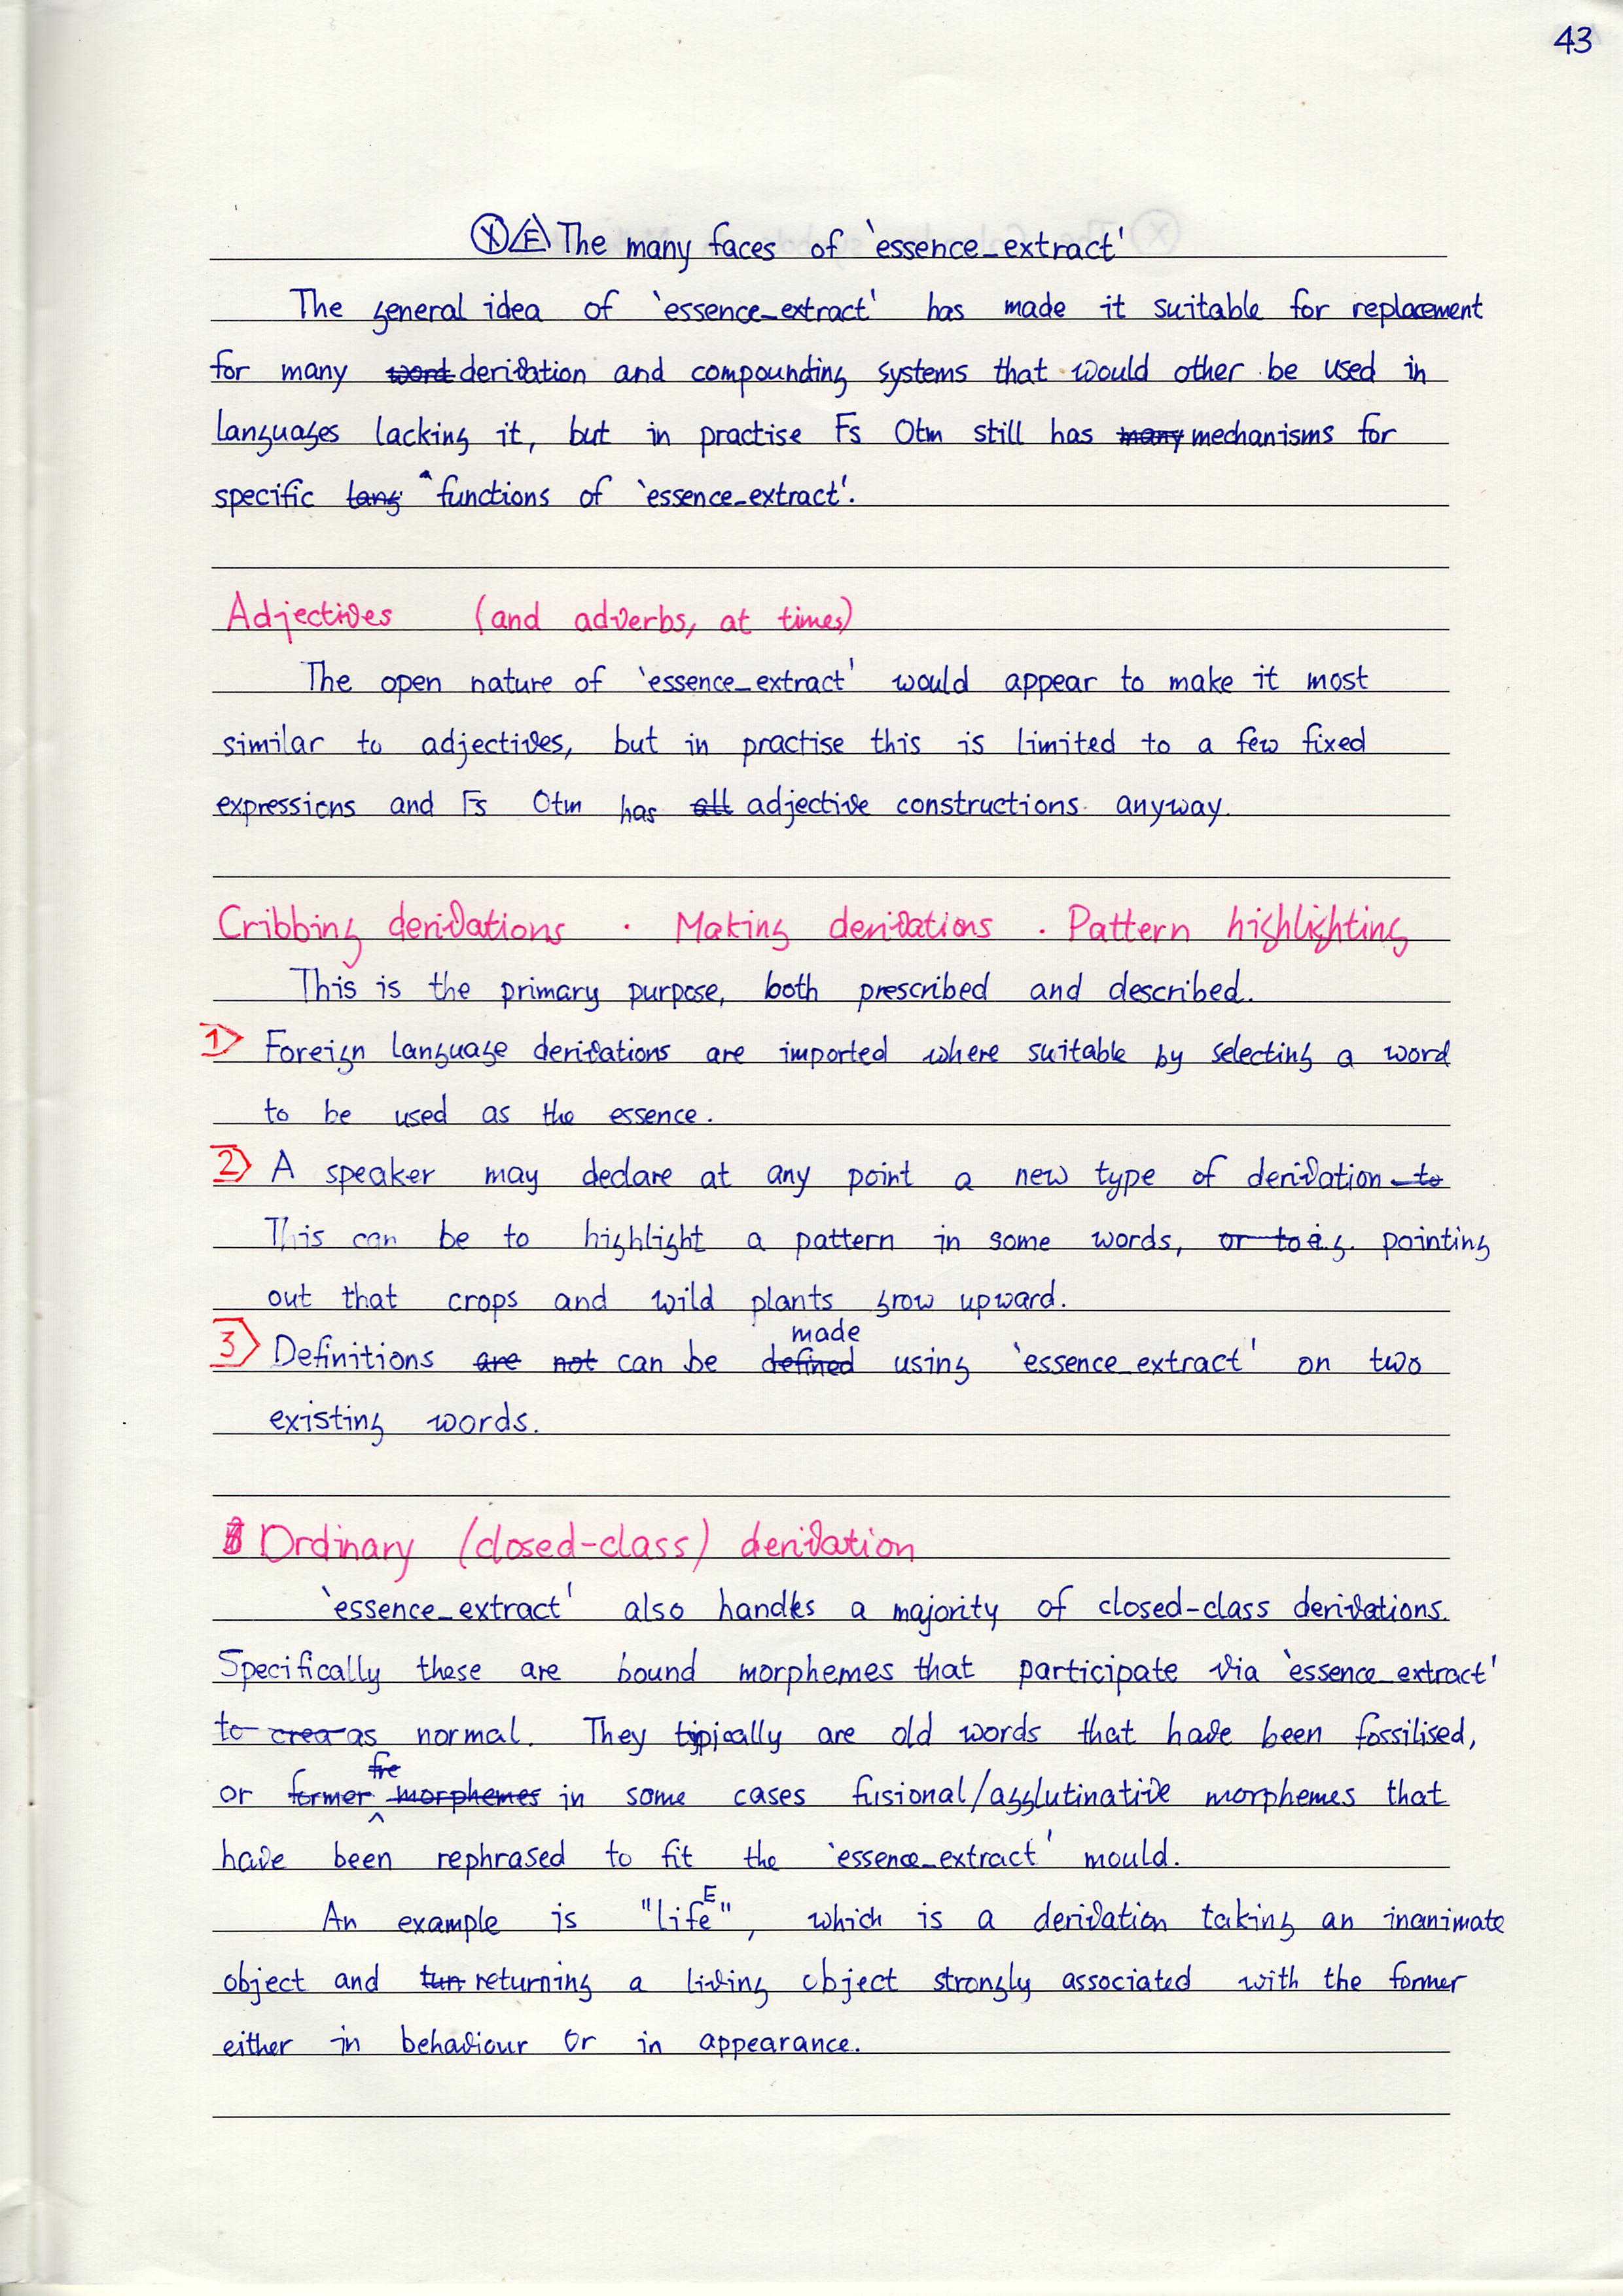 43
Ⓧ E The many faces of 'essence_extract'
The general idea of 'essence_extract' has made it suitable for replacement
for many ~~word~~ derivation and compounding systems that would other be used in
languages lacking it, but in practise Fs Otm still has ~~many~~ mechanisms for
specific ~~lang~~ functions of 'essence_extract'.
Adjectives (and adverbs, at times)
The open nature of 'essence_extract' would appear to make it most
similar to adjectives, but in practise this is limited to a few fixed
expressions and Fs Otm has ~~all~~ adjective constructions anyway.
Cribbing derivations · Making derivations · Pattern highlighting
This is the primary purpose, both prescribed and described.
1 Foreign language derivations are imported where suitable by selecting a word
to be used as the essence.
2 A speaker may declare at any point a new type of derivation ~~to~~
This can be to highlight a pattern in some words, ~~or to e.g.~~ pointing
out that crops and wild plants grow upward.
made
3 Definitions ~~are~~ ~~not~~ can be ~~defined~~ using 'essence_extract' on two
existing words.
Ordinary (closed-class) derivation
'essence_extract' also handles a majority of closed-class derivations.
Specifically these are bound morphemes that participate via 'essence_extract'
~~to crea~~ as normal. They typically are old words that have been fossilised,
~~fre~~
or ~~former~~ ^ ~~morphemes~~ in some cases fusional/agglutinative morphemes that
have been rephrased to fit the 'essence_extract' mould.
An example is "life^E", which is a derivation taking an inanimate
object and ~~turn~~ returning a living object strongly associated with the former
either in behaviour or in appearance.